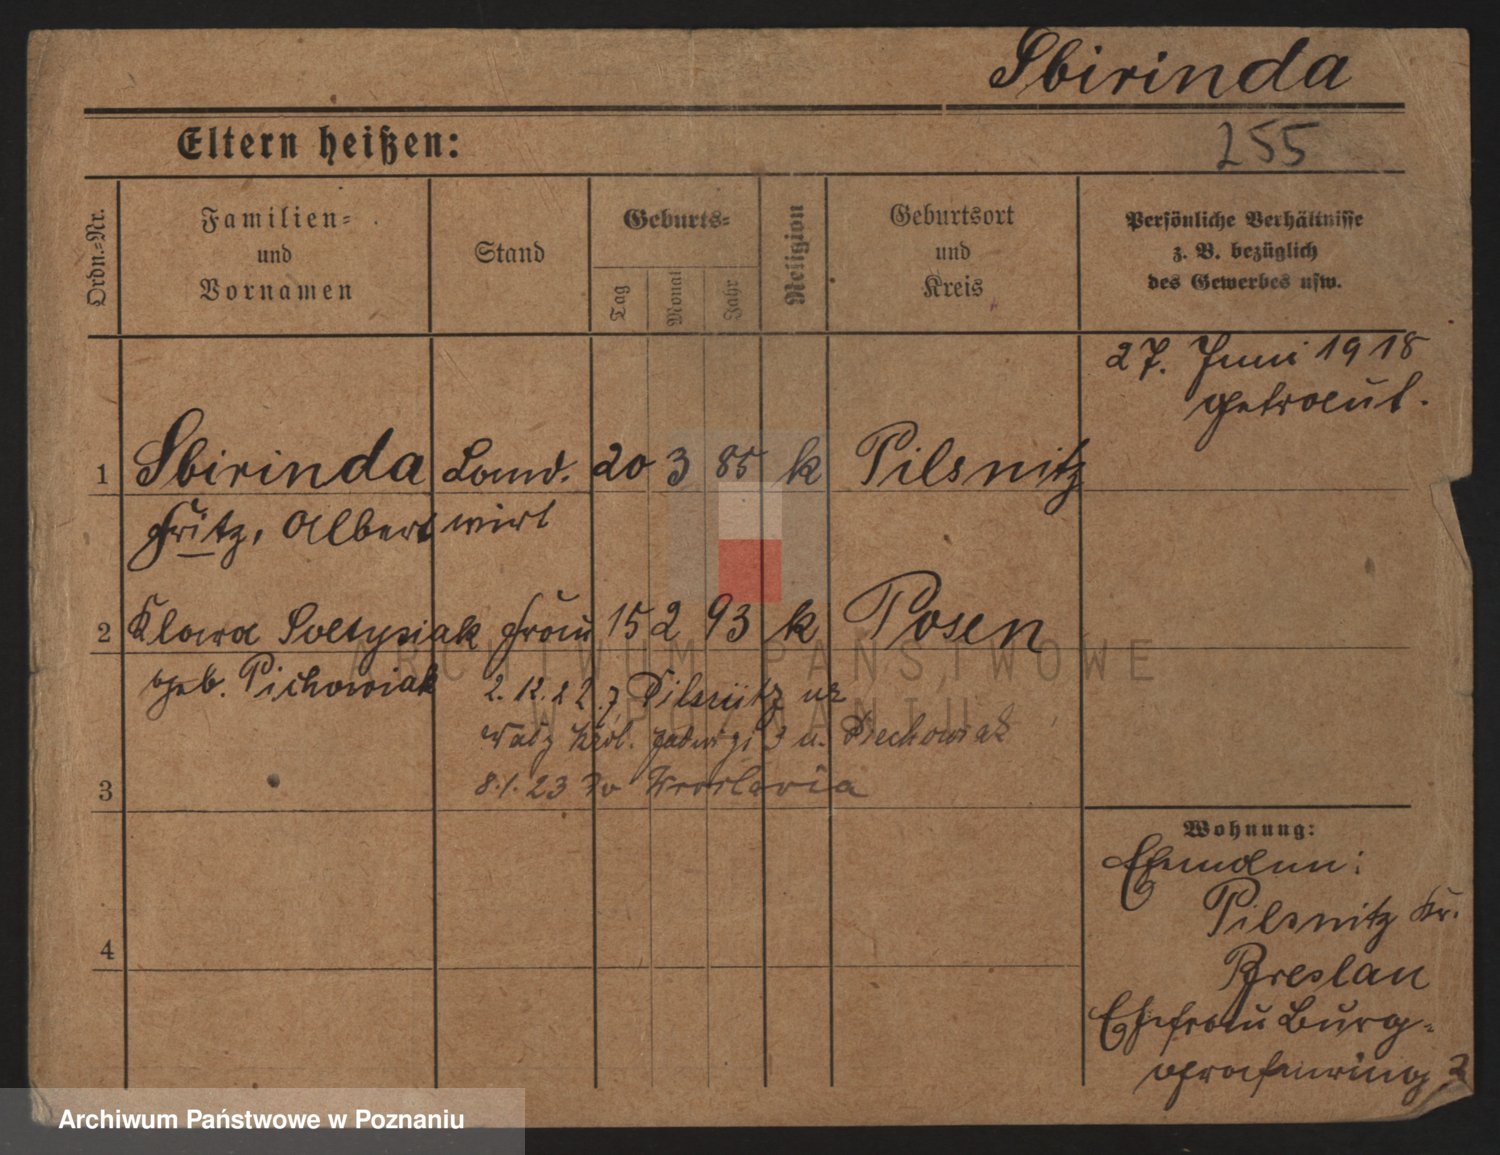 Sbirinda
Eltern heißen:
255
Ordn.-Nr.
Familien-
und
Vornamen
Stand
Geburts-
Tag
Monat
Jahr
Religion
Geburtsort
und
Kreis
Persönliche Verhältnisse
z. B. bezüglich
des Gewerbes usw.
27. Juni 1918
getraut.
1 Sbirinda Land. 20 3 85 k Pilsnitz
Fritz, Albert wirt
2 Klara Soltysiak Frau 15 2 93 k Posen
geb. Pichowiak
2.12.22 Pilsnitz
Król. Jadwigi 3 u. Piechowiak
8.1.23
3
4
Wohnung:
Ehemann:
Pilsnitz Kr.
Breslau
Ehefrau Burg-
grafenring 3
ARCHIWUM PAŃSTWOWE
W POZNANIU
Archiwum Państwowe w Poznaniu